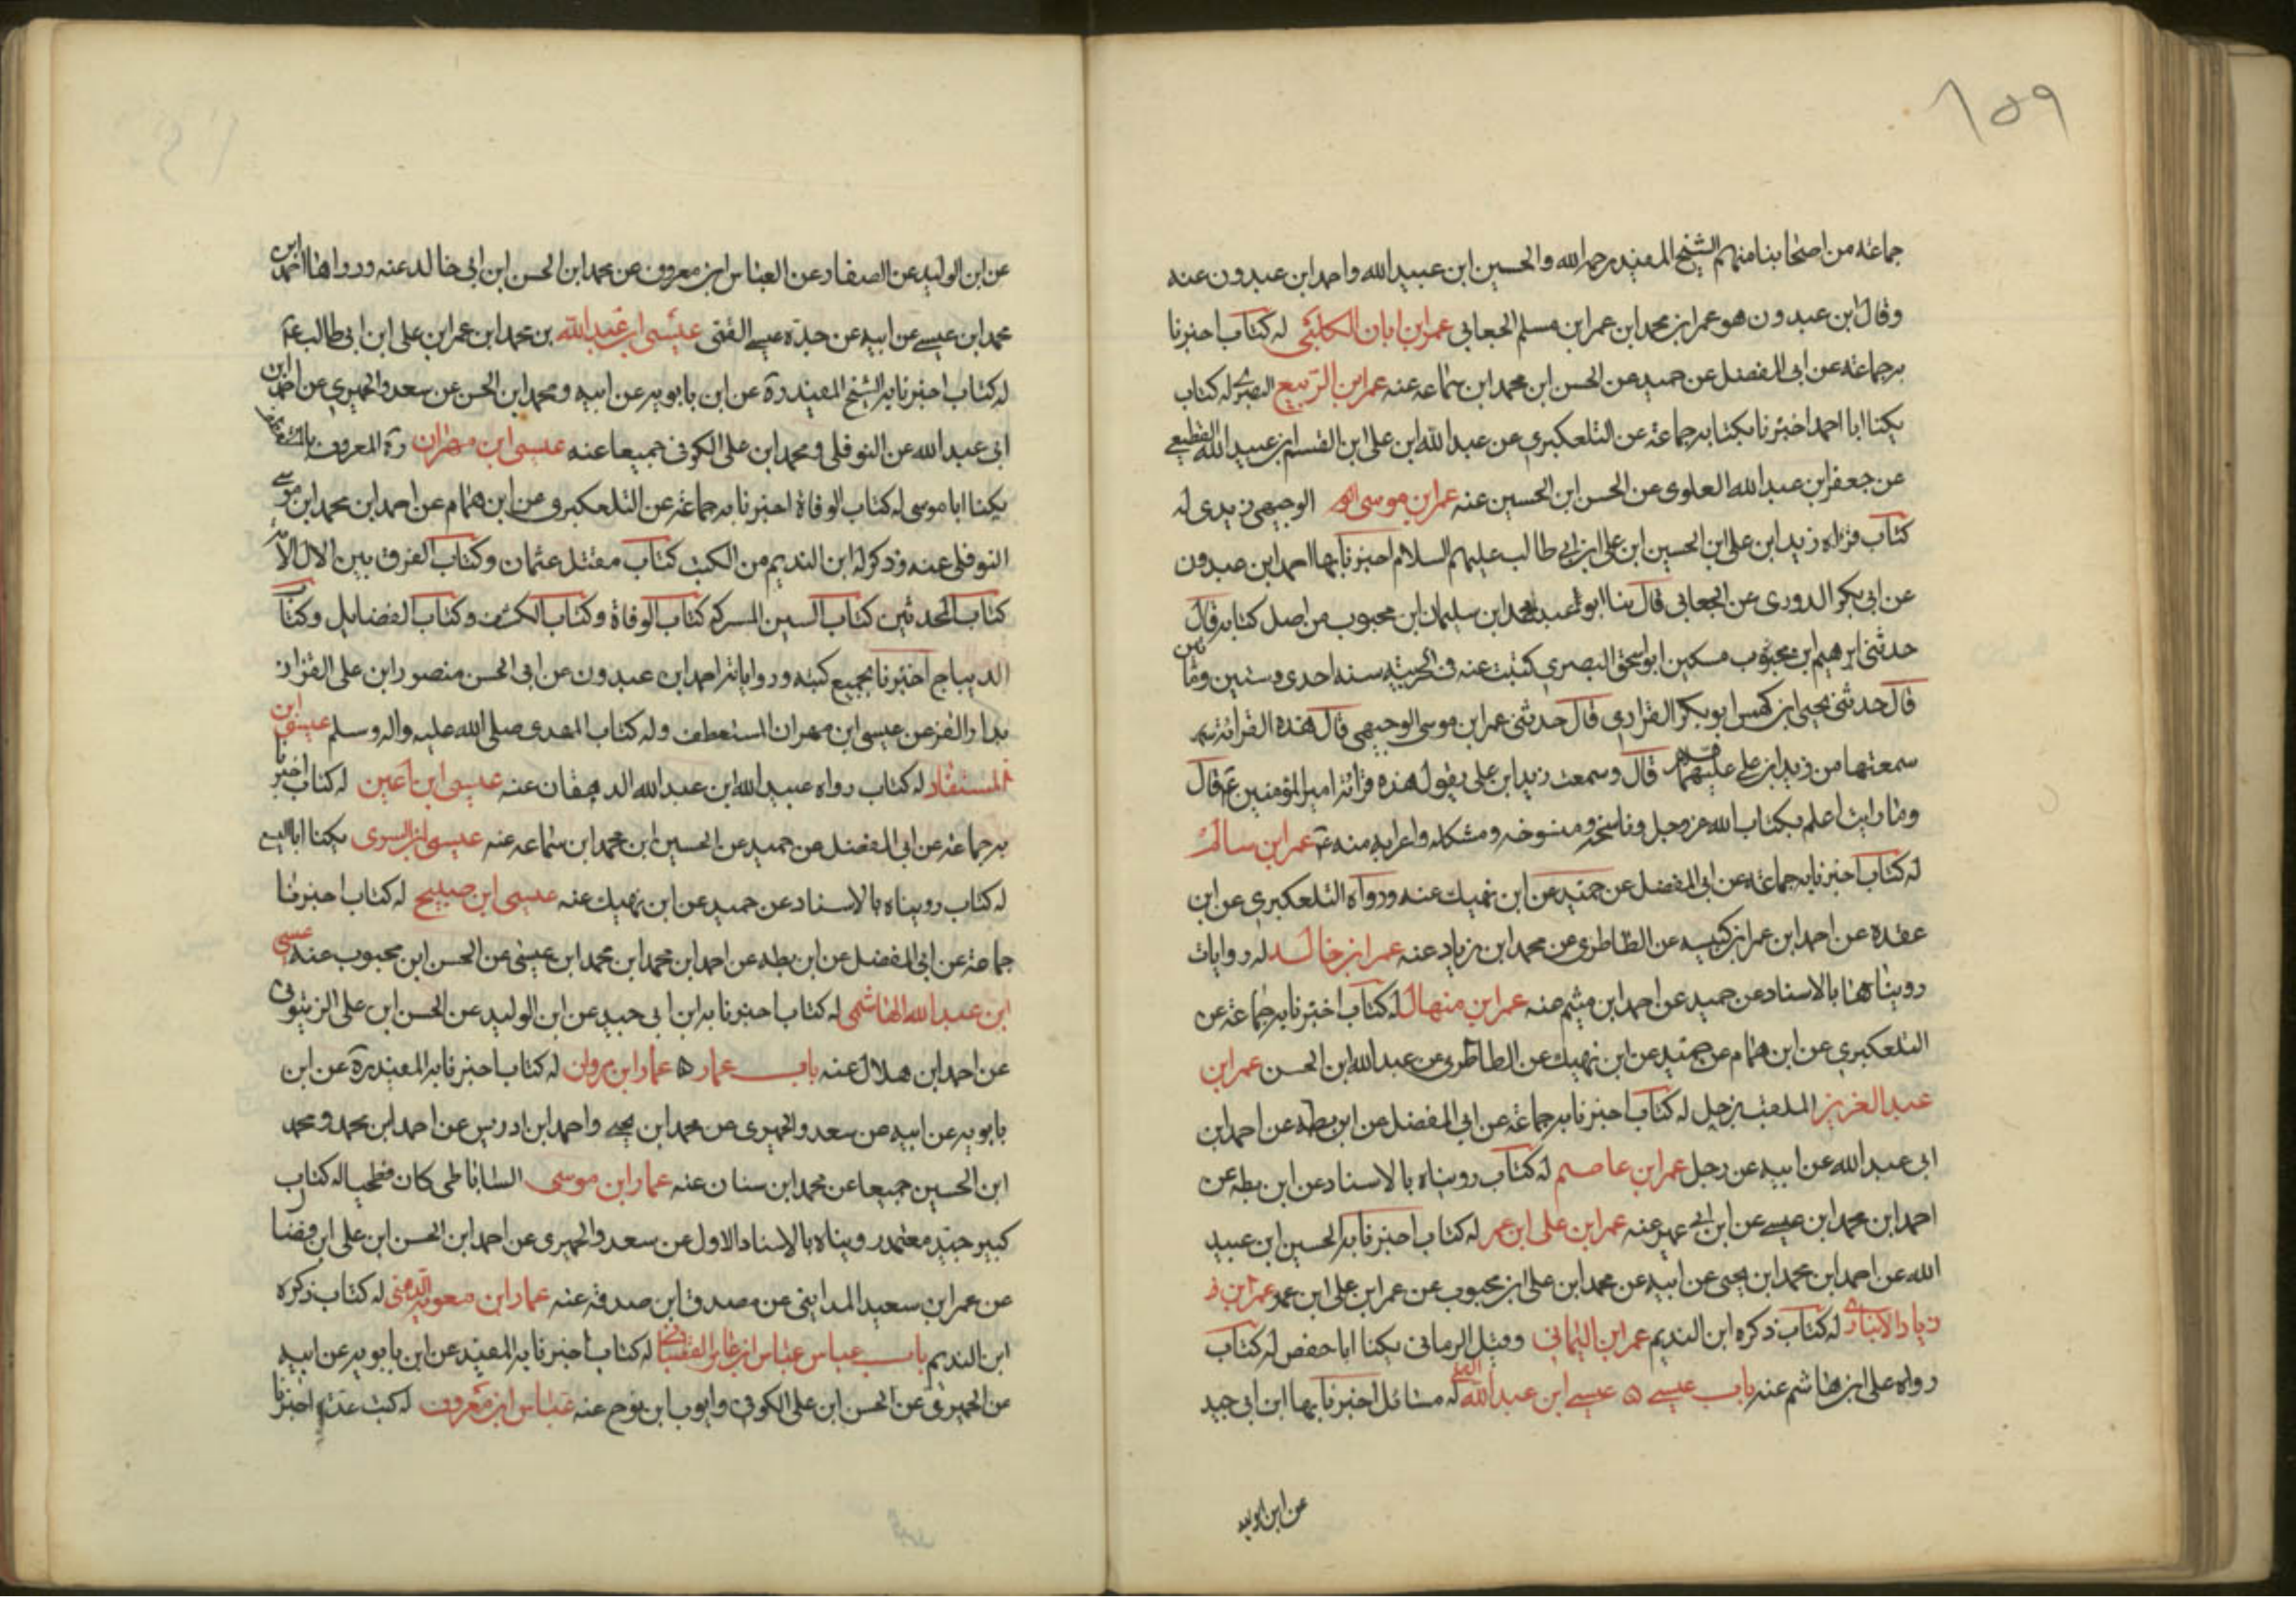 ١٥٩
جماعة من اصحابنا منهم الشيخ المفيد رحمه الله والحسين ابن عبيد الله واحمد ابن عبدون عنه
وقال ابن عبدون هو عمر ابن محمد ابن عمر ابن مسلم الجعابي عمر ابن ابان الكلبي له كتاب اخبرنا
به جماعة عن ابي المفضل عن حميد عن الحسن ابن محمد ابن سماعه عنه عمر ابن الربيع البصري له كتاب
يكنا ابا احمد اخبرنا بكتابه جماعة عن التلعكبري عن عبد الله ابن علي ابن القسم ابن عبيد الله القطيعي
عن جعفر ابن عبد الله العلوي عن الحسن ابن الحسين عنه عمر ابن موسى الوجيهي زيدي له
كتاب قراءه زيد ابن علي ابن الحسين ابن علي ابن ابي طالب عليهم السلام اخبرنا بها احمد ابن عبدون
عن ابي بكر الدوري عن الجعابي قال ثنا ابو عبد محمد ابن سليمان ابن محبوب من اصل كتابه قال
حدثني ابرهيم ابن محبوب مسكين ابو اسحق البصري كتبت عنه في الحربيه سنه احدى وستين ومأتين
قال حدثني يحيى ابن كهمس ابو بكر الفزاري قال حدثني عمر ابن موسى الوجيهي قال هذه القرائة
سمعتها من زيد ابن علي عليهما السلام قال وسمعت زيد ابن علي يقول هذه قرائة امير المؤمنين ع قال
وما رايت اعلم بكتاب الله عز وجل وناسخه ومنسوخه ومشكله واعرابه منه ع عمر ابن سالم
له كتاب اخبرنا به جماعة عن ابي المفضل عن حميد عن ابن نهيك عنه ورواه التلعكبري عن ابن
عقده عن احمد ابن عمر ابن كيسبه عن الطاطري عن محمد ابن زياد عنه عمر ابن خالد له روايات
رويناها بالاسناد عن حميد عن احمد ابن ميثم عنه عمر ابن منهال له كتاب اخبرنا به جماعة عن
التلعكبري عن ابن همام عن حميد عن ابن نهيك عن الطاطري عن عبد الله ابن الحسن عمر ابن
عبد العزيز الملقب بزحل له كتاب اخبرنا به جماعة عن ابي المفضل عن ابن بطه عن احمد ابن
ابي عبد الله عن ابيه عن زحل عمر ابن عاصم له كتاب رويناه بالاسناد عن ابن بطه عن
احمد ابن محمد ابن عيسى عن ابن ابي عمير عنه عمر ابن علي ابن عمر له كتاب اخبرنا به الحسين ابن عبيد
الله عن احمد ابن محمد ابن يحيى عن ابيه عن محمد ابن علي ابن محبوب عن عمر ابن علي ابن عمر عمر ابن
زياد الابزاري له كتاب ذكره ابن النديم عمر ابن اليماني وقيل الرماني يكنا ابا حفص له كتاب
رواه علي ابن هاشم عنه باب عيسى ٥ عيسى ابن عبد الله القمي له مسائل اخبرنا بها ابن ابي جيد
عن ابن الوليد
عن ابن الوليد عن الصفار عن العباس ابن معروف عن محمد ابن الحسن ابن ابي خالد عنه ورواها احمد ابن
محمد ابن عيسى عن ابيه عن جده عيسى القمي عيسى ابن عبد الله بن محمد ابن عمر ابن علي ابن ابي طالب ع
له كتاب اخبرنا به الشيخ المفيد ره عن ابن بابويه عن ابيه ومحمد ابن الحسن عن سعد والحميري عن احمد ابن
ابي عبد الله عن النوفلي ومحمد ابن علي الكوفي جميعا عنه عيسى ابن مهران ره المعروف بالمستعطف
يكنا ابا موسى له كتاب الوفاة اخبرنا به جماعة عن التلعكبري عن ابن همام عن احمد ابن محمد ابن موسى
النوفلي عنه وذكر له ابن النديم من الكتب كتاب مقتل عثمان وكتاب الفرق بين الال والامة
كتاب المحدثين كتاب السنن المشتركة كتاب الوفاة وكتاب الكشف وكتاب الفضايل وكتاب
الديباج اخبرنا بجميع كتبه ورواياته احمد ابن عبدون عن ابي الحسن منصور ابن علي القزاز
بدار القز عن عيسى ابن مهران المستعطف وله كتاب المهدي صلى الله عليه واله وسلم عيسى ابن
المستفاد له كتاب رواه عبيد الله ابن عبد الله الدهقان عنه عيسى ابن اعين له كتاب اخبرنا
به جماعة عن ابي المفضل عن حميد عن الحسين ابن محمد ابن سماعه عنه عيسى ابن السرى يكنا ابا اليسع
له كتاب رويناه بالاسناد عن حميد عن ابن نهيك عنه عيسى ابن صبيح له كتاب اخبرنا
جماعة عن ابي المفضل عن ابن بطه عن احمد ابن محمد ابن محمد ابن عيسى عن الحسن ابن محبوب عنه عيسى
ابن عبد الله الهاشمي له كتاب اخبرنا به ابن ابي جيد عن ابن الوليد عن الحسن ابن علي الزيتوني
عن احمد ابن هلال عنه باب عمار ٥ عمار ابن مروان له كتاب اخبرنا به المفيد ره عن ابن
بابويه عن ابيه عن سعد والحميري عن محمد ابن يحيى واحمد ابن ادريس عن احمد ابن محمد ومحمد
ابن الحسين جميعا عن محمد ابن سنان عنه عمار ابن موسى الساباطي كان فطحيا له كتاب
كبير جيد معتمد رويناه بالاسناد الاول عن سعد والحميري عن احمد ابن الحسن ابن علي ابن فضال
عن عمر ابن سعيد المدايني عن مصدق ابن صدقه عنه عمار ابن معويه الدهني له كتاب ذكره
ابن النديم باب عباس عباس ابن عامر القصباني له كتاب اخبرنا به المفيد عن ابن بابويه عن ابيه
عن الحميري عن الحسن ابن علي الكوفي وايوب ابن نوح عنه عباس ابن معروف له كتب عدة اخبرنا